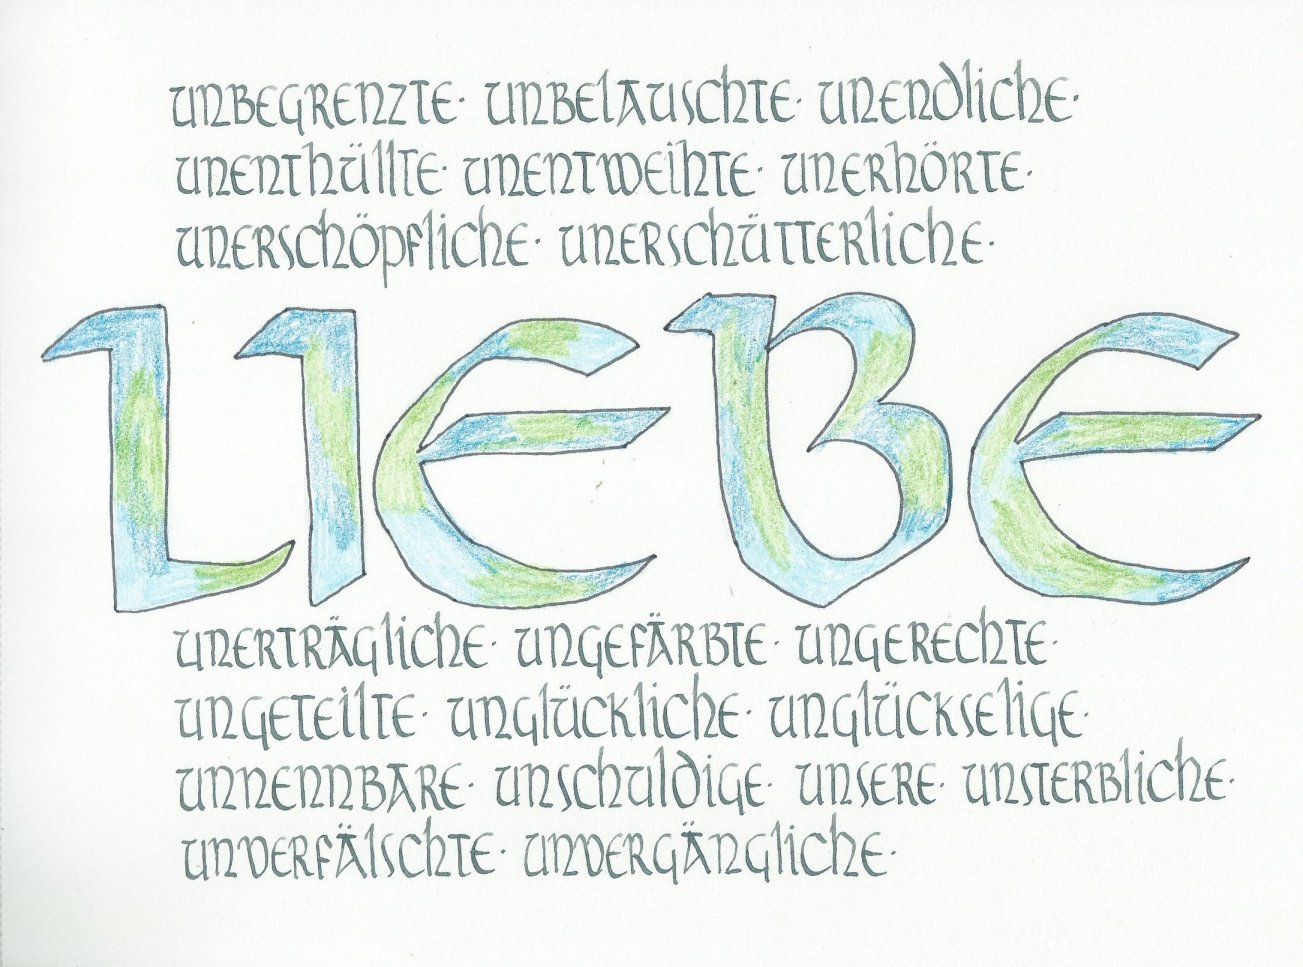 unbegrenzte · unbelauschte · unendliche ·
unenthüllte · unentweihte · unerhörte ·
unerschöpfliche · unerschütterliche ·
LIEBE
unerträgliche · ungefärbte · ungerechte ·
ungeteilte · unglückliche · unglückselige ·
unnennbare · unschuldige · unsere · unsterbliche ·
unverfälschte · unvergängliche ·